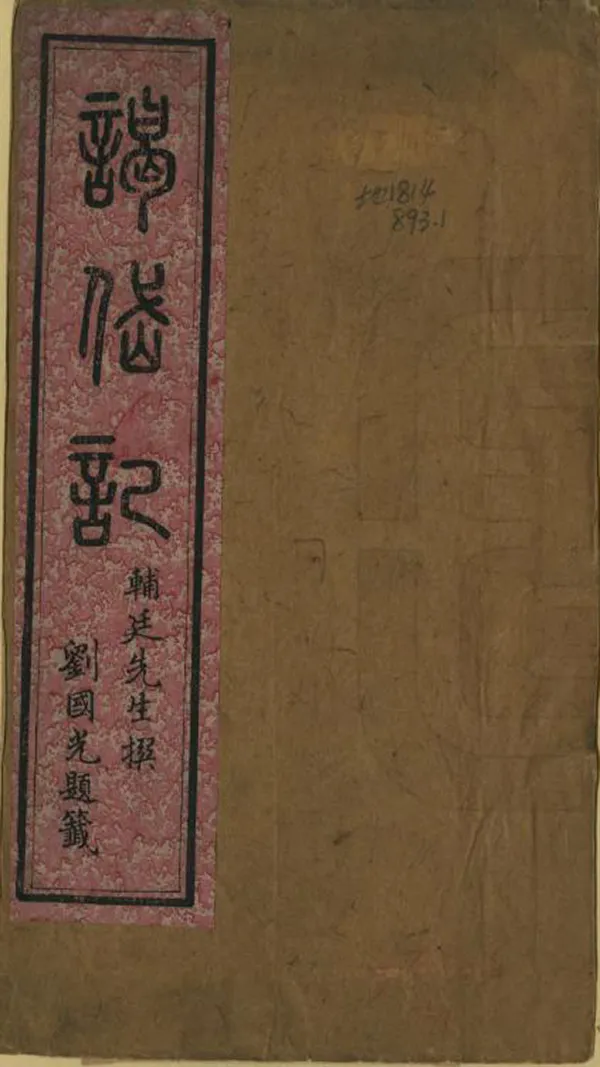 謁岱記
輔廷先生撰
劉國光題籤
地1814
893.1